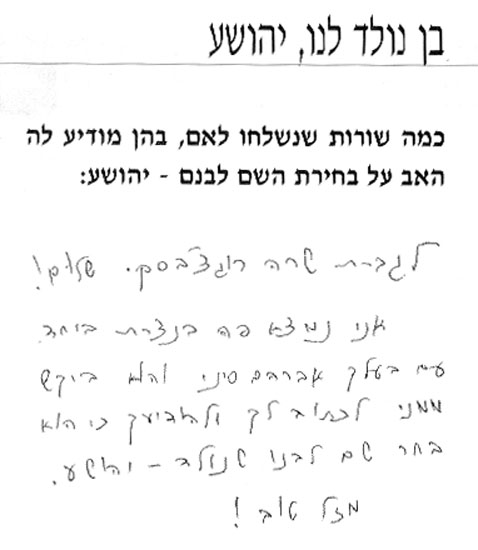 בן נולד לנו, יהושע
כמה שורות שנשלחו לאם, בהן מודיע לה
האב על בחירת השם לבנם - יהושע:
לגברת שרה רוגצ'בסקי. שלום!
אני נמצא פה בנצרת ביחד
עם בעלך אברהם סיני והוא ביקש
ממני לכתוב לך ולהודיעך כי הוא
בחר שם לבנו שנולד - יהושע.
מזל טוב!